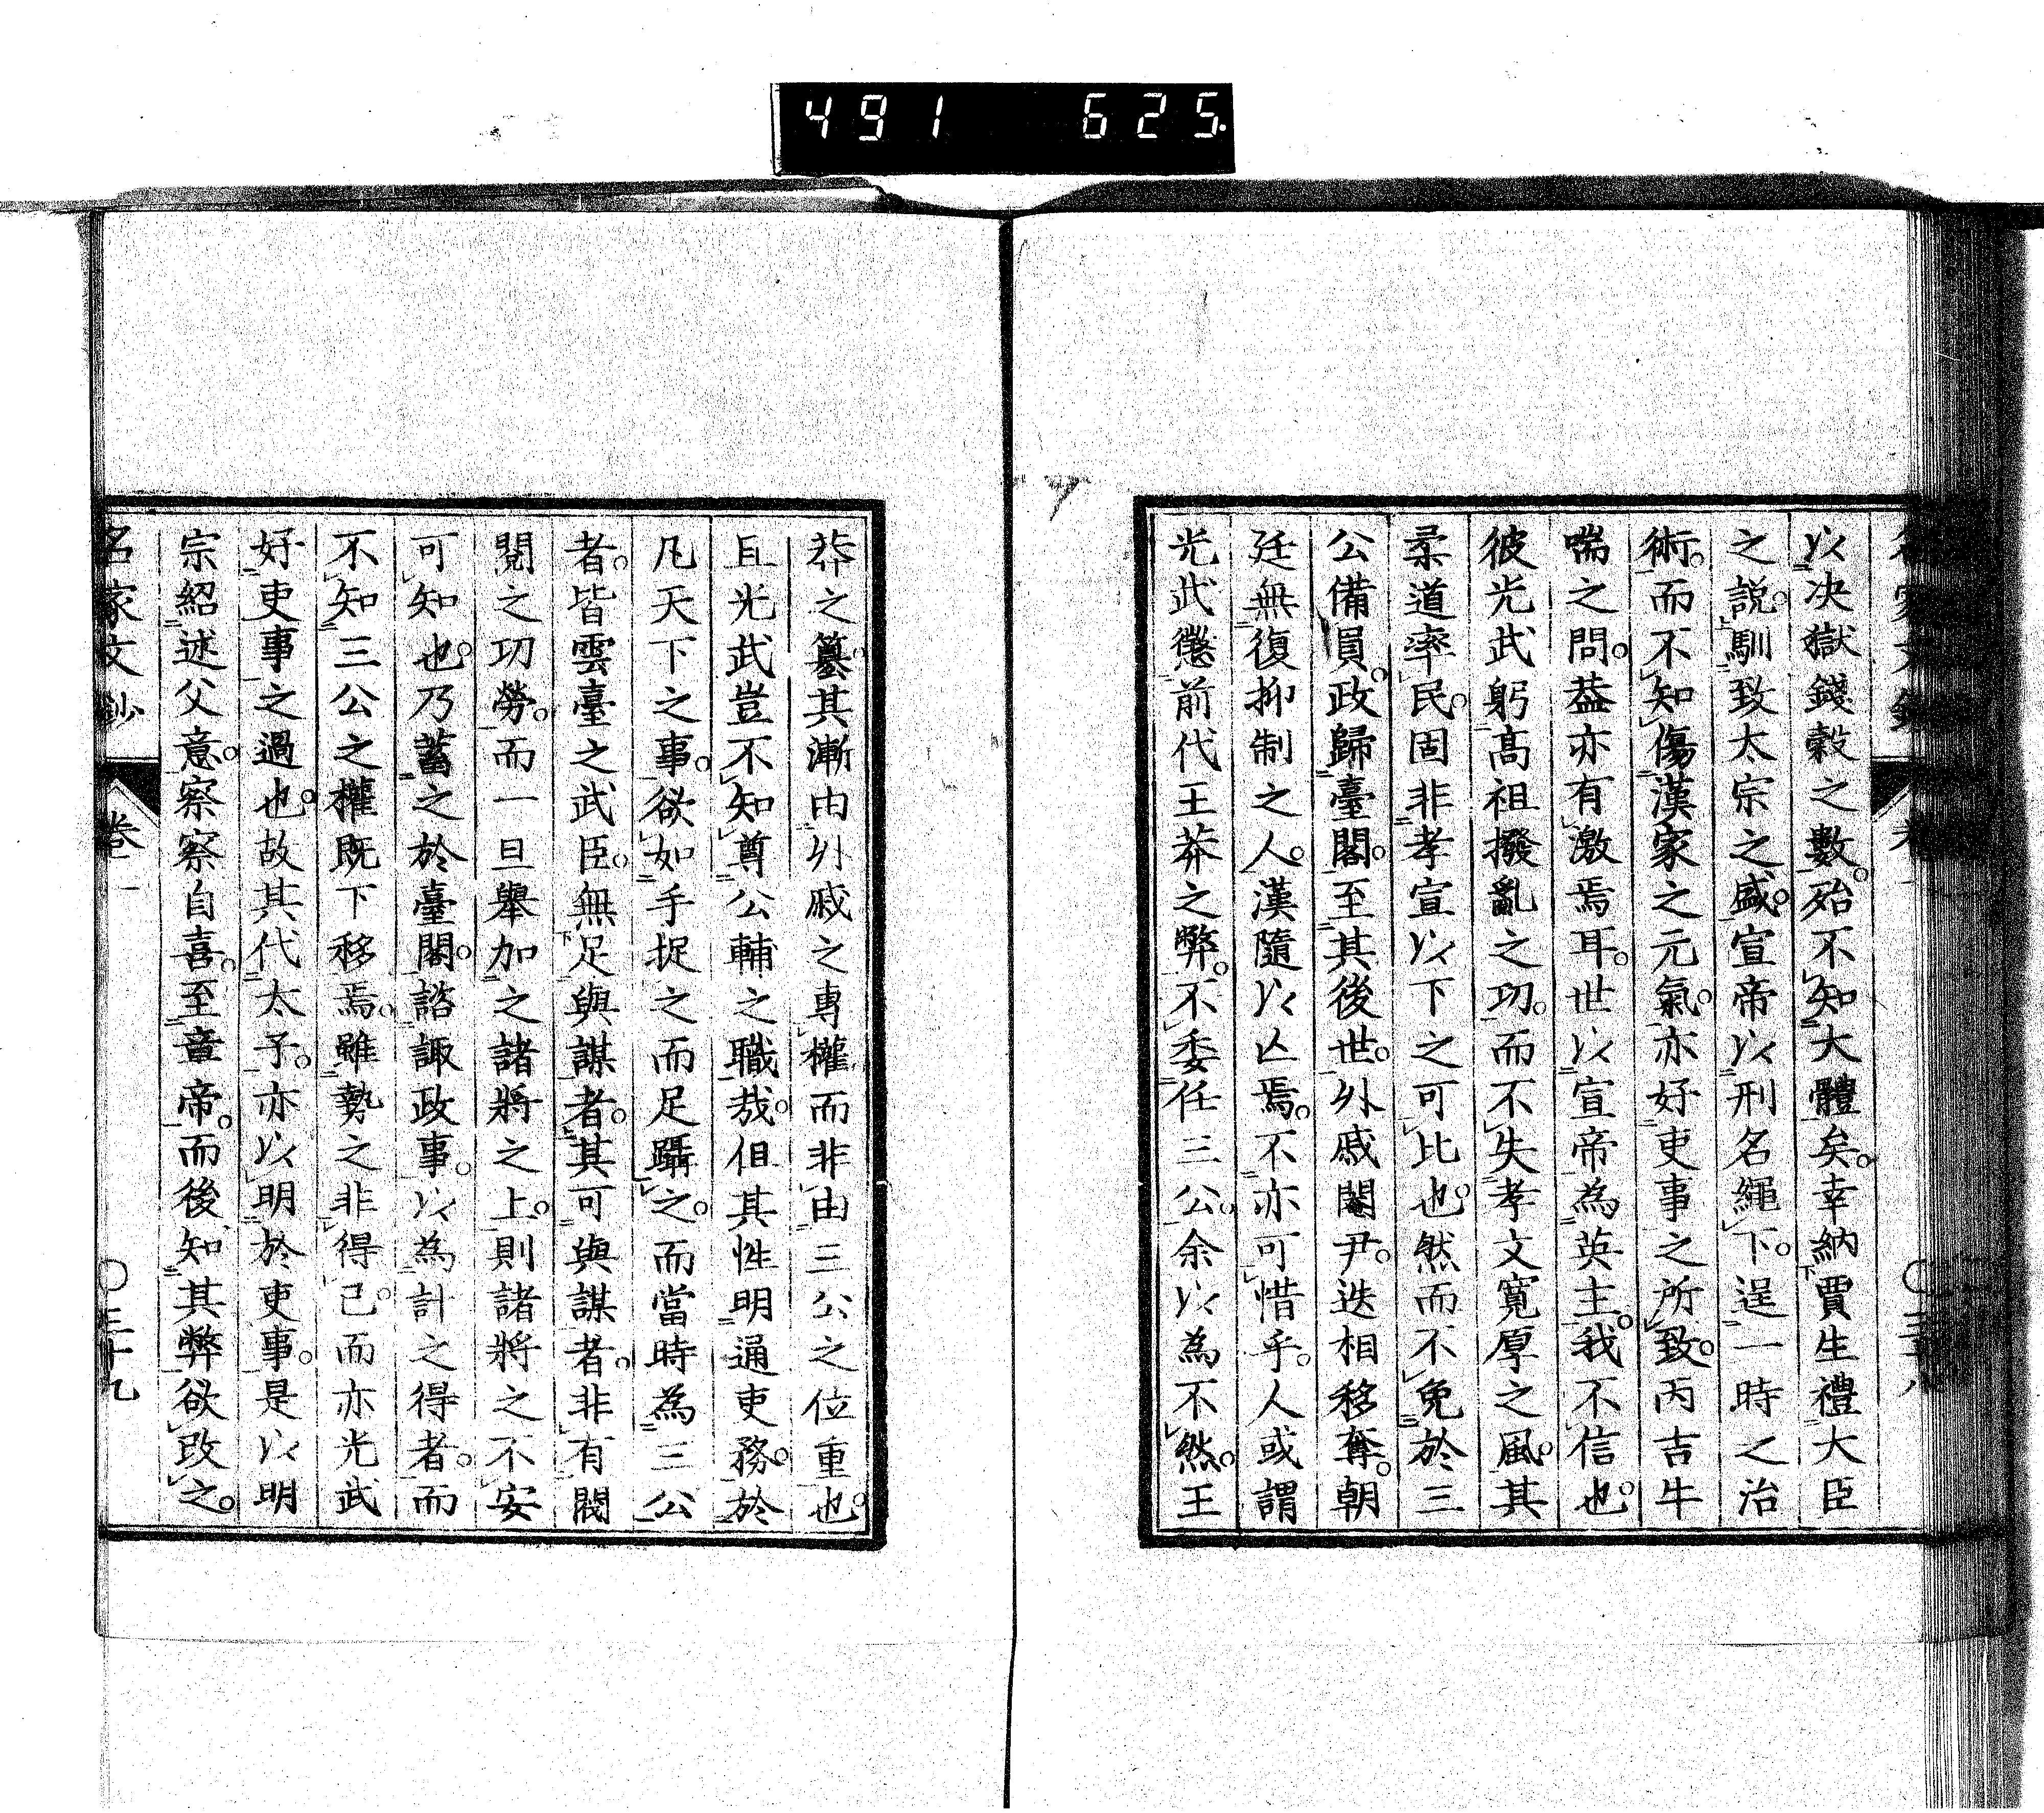 491 625.
以决獄錢穀之數。殆不知大體矣。幸納賈生禮大臣
之説。馴致太宗之盛。宣帝以刑名繩下。逞一時之治
術。而不知傷漢家之元氣。亦好吏事之所致。丙吉牛
喘之問。葢亦有激焉耳。世以宣帝為英主。我不信也。
彼光武躬高祖撥亂之功。而不失孝文寛厚之風。其
柔道率民。固非孝宣以下之可比也。然而不免於三
公備員。政歸臺閣。至其後世。外戚閹尹。迭相移奪。朝
廷無復抑制之人。漢隨以亾焉。不亦可惜乎。人或謂
光武懲前代王莽之弊。不委任三公。余以為不然。王
莽之簒。其漸由外戚之專權而非由三公之位重也。
且光武豈不知尊公輔之職哉。但其性明通吏務。於
凡天下之事。欲如手捉之而足躡之。而當時為三公
者。皆雲臺之武臣。無足與謀者。其可與謀者。非有閥
閲之功勞。而一旦舉加之諸將之上。則諸將之不安
可知也。乃蓄之於臺閣。諮諏政事。以為計之得者。而
不知三公之權既下移焉。雖勢之非得已。而亦光武
好吏事之過也。故其代太子。亦以明於吏事。是以明
宗紹述父意。察察自喜。至章帝。而後知其弊欲改之。
名家文鈔 卷一 〇三十九